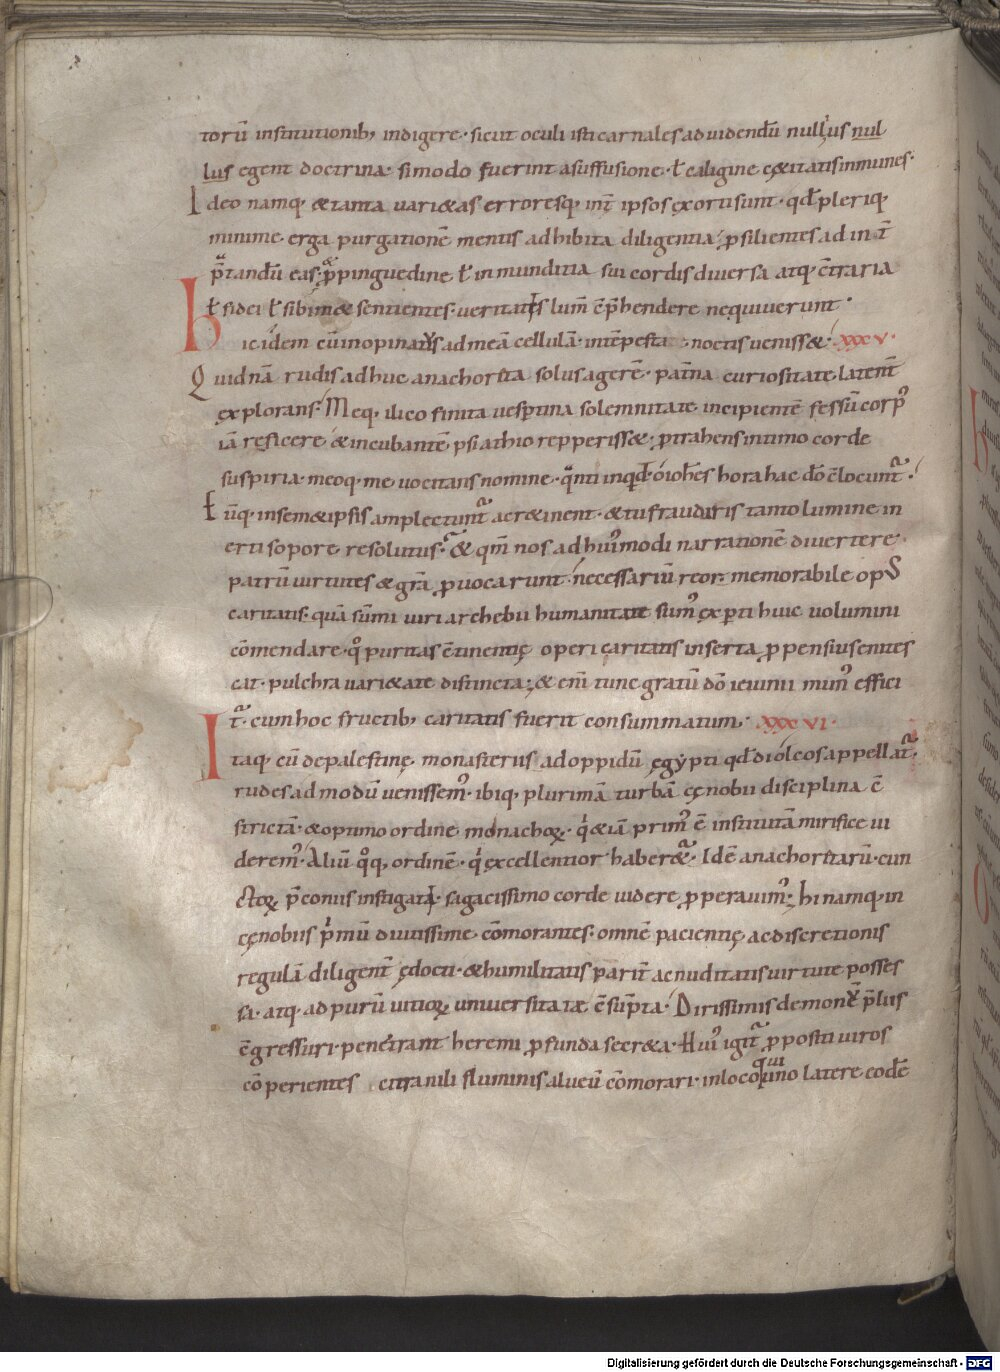 torū institutionib; indigere· sicut oculi isti carnales ad videndū nullius nul
lius egent doctrina· si modo fuerint a suffusione· ł caligine cęcitatis inmunes·
Ideo namq; & tanta vari&as erroresq; int̄ ipsos exorti sunt· qđ pleriq;
minime erga purgationē mentis adhibita diligentia, prosilientes ad int̄
p̄tandū eas· p̱ pinguedine ł inmunditia sui cordis diversa atq; c̄traria
ł fidei ł sibim& sentientes· veritatis lum̄ c̄p̄hendere nequiverunt·
hic idem cū inopinatus ad meā cellulā· intēpesta noctis veniss&· xxxv·
Quidnā rudis adhuc anachorita solus agerē· pat̄na curiositate latent̄
explorans· Meq; ilico finita vesp̱tina solemnitate incipientē fessū corp᾽
iā reficere & incubantē psiathio repperiss&· p̱trahens intimo corde
suspiria· meoq; me vocitans nomine· q̄nti inquid· o ioħes hora hac dōo c̄locunt᾽·
Eūq; in sem&ipsis amplectunt᾽ ac r&inent· & tu fraudaris tanto lumine in
erti sopore resolutus· & qm̄ nos ad hui᾽modi narrationē divertere·
patrū virtutes & gr̄a p̱vocarunt· necessariū reor memorabile op᾽
caritatis· quā sūmi viri archebii humanitate sum᾽ exp̱ti huic volumini
cōmendare· q᾽ puritas c̄tinentię operi caritatis inserta p̱pensius enites
cat· pulchra vari&ate distincta· & em̄ tunc gratū dō ieiunii mun᾽ effici
t᾽· cum hoc fructib; caritatis fuerit consummatum· xxxvi·
Itaq; cū de palestinę monasteriis ad oppidū ęgypti qđ diolcos appellat᾽·
rudes admodū venissem᾽· ibiq; plurimā turbā cęnobii disciplina c̄
strictā· & optimo ordine monachoꝝ· q & iā prim᾽ ē institutā mirifice vi
derem᾽· Aliū q°q; ordinē· q excellentior haber&᾽· Idē anachoritarū· cun
ctoꝝ p̄coniis instigati· sagacissimo corde videre p̱peravim᾽· hi namq; in
cęnobiis p̄mū diutissime cōmorantes· omnē pacientię ac discretionis
regulā diligent̄ ędocti· & humilitatis parit̄ ac nuditatis virtute posses
sa· atq; ad purū vitioꝝ universitatæ c̄sūpta· Dirissimis demonū p̄liis
c̄gressuri· penetrant heremi p̱funda secr&a· Hui᾽ igit᾽ p̱positi viros
cōperientes citra nili fluminis alveū cōmorari· in loco qui uno latere eodē
Digitalisierung gefördert durch die Deutsche Forschungsgemeinschaft - DFG